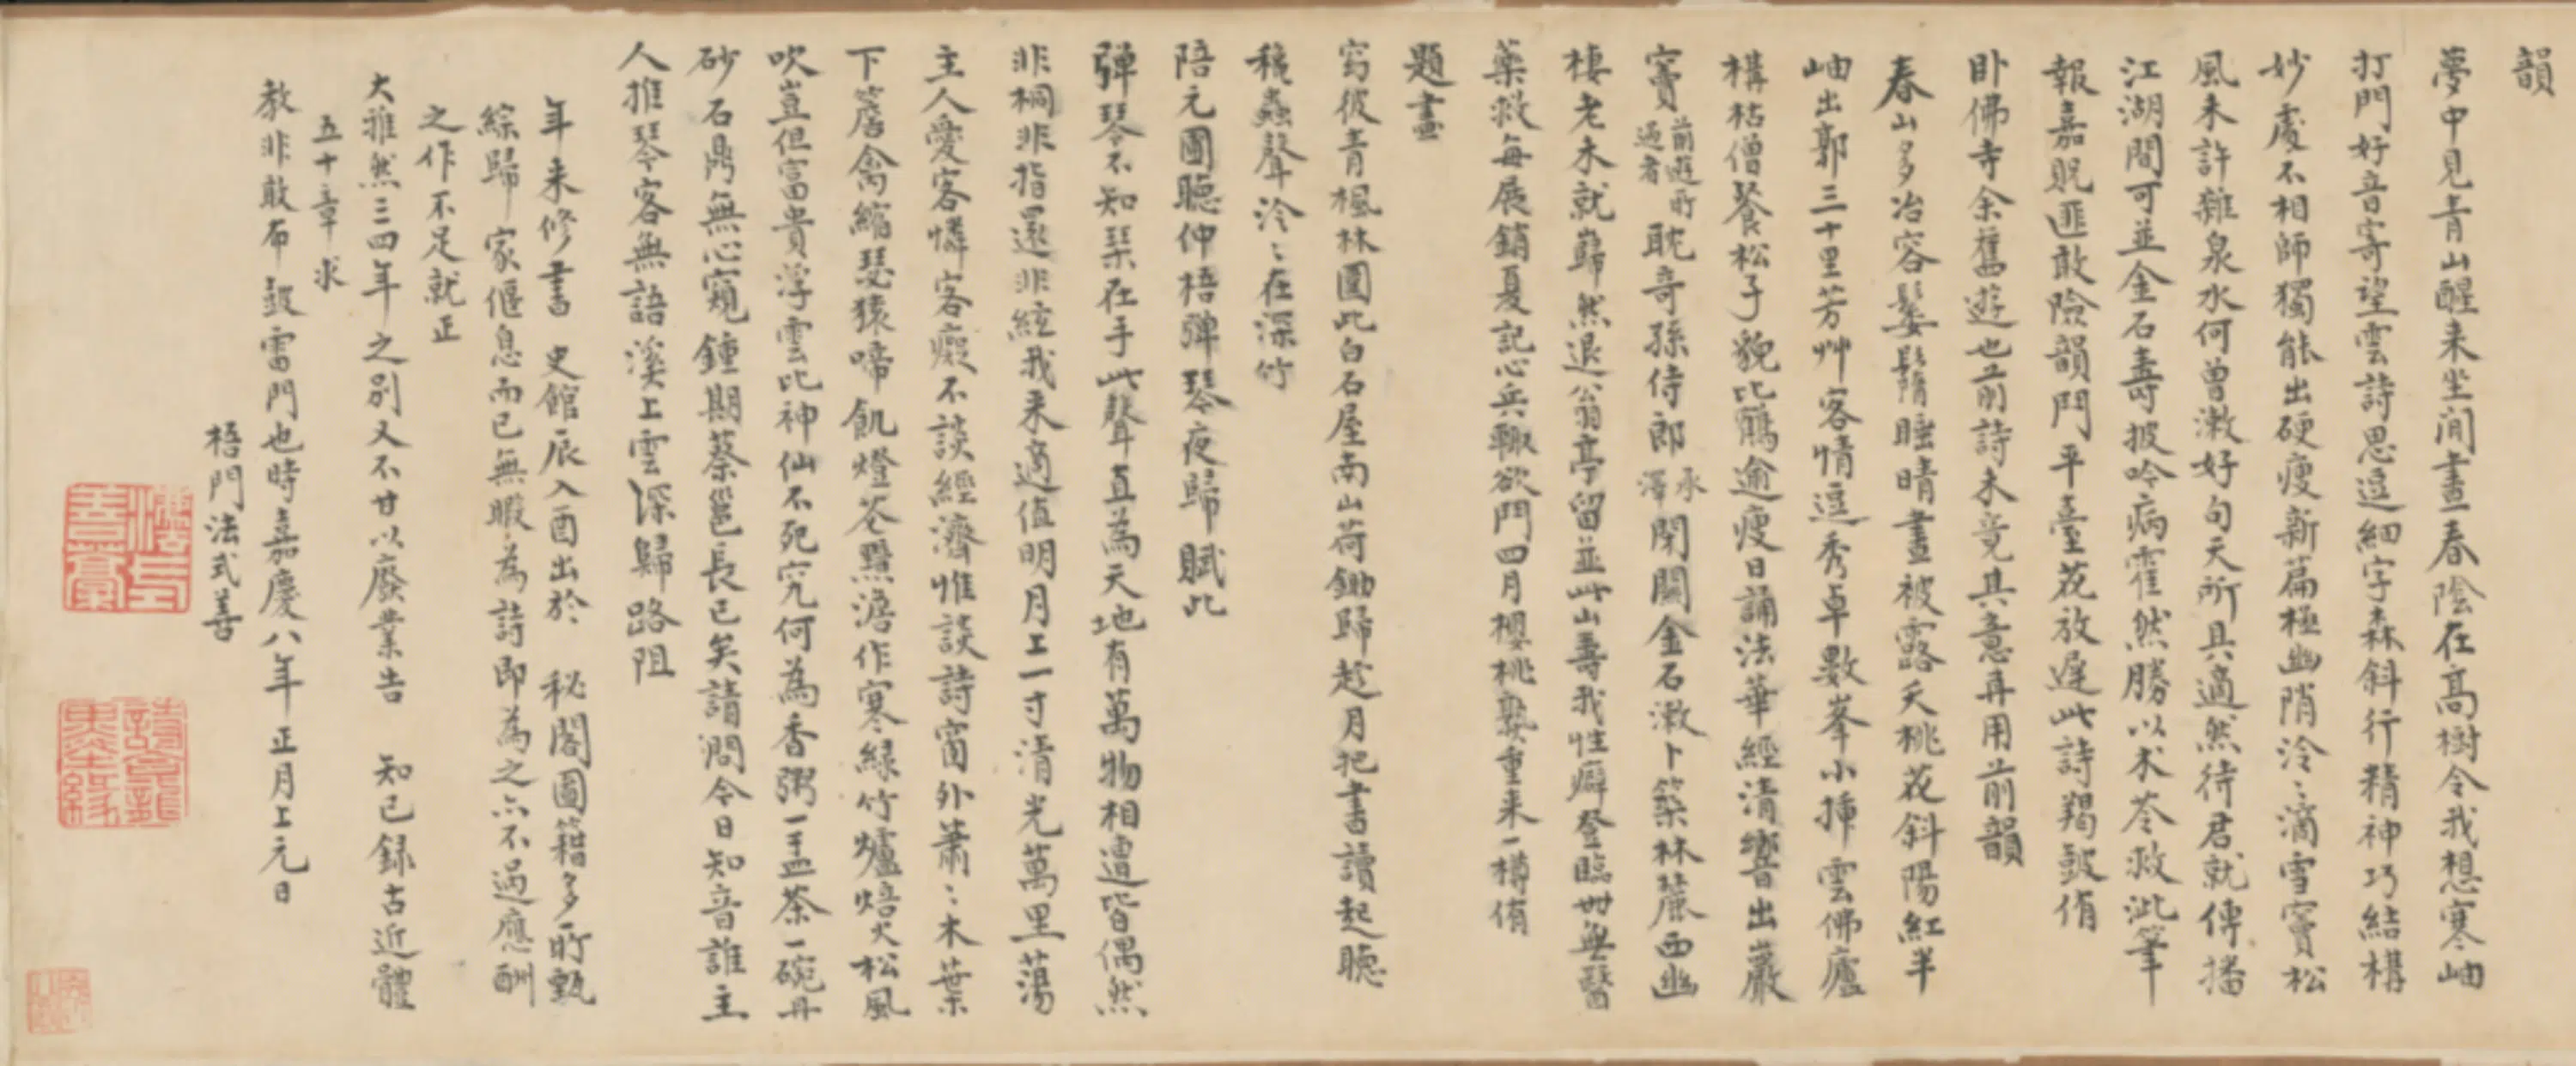 韻
夢中見青山醒来坐閒晝春陰在高樹令我想寒岫
打門好音寄望雲詩思逗細字森斜行精神巧結構
妙處不相師獨能出硬瘦新篇極幽隋泠〻滴雪竇松
風未許雜泉水何曾漱好句天所具適然待君就傳播
江湖間可並金石壽披吟病霍然勝以术苓救泚筆
報嘉貺匪敢險韻鬥平臺花放遲此詩羯鼓侑
卧佛寺余舊遊也前詩未竟其意再用前韻
春山多冶容鬟鬌睡晴晝被露夭桃花斜陽紅半
岫出郭三十里芳艸客情逗秀卓數峯小揷雲佛廬
構枯僧餐松子貌比鶴逾瘦日誦法華經清響出巖
竇前遊所遇者耽奇孫侍郎承澤閉關金石漱卜築林麓西幽
棲老未就歸然退翁亭留並此山壽我性癖登臨卌無醫
藥救每展銷夏記心兵輒欲鬥四月櫻桃熟重来一樽侑
題畫
窈彼青楓林圍此白石屋南山荷鋤歸趁月把書讀起聽
穐蟲聲泠〻在深竹
陪元圃聽仲梧彈琴夜歸賦此
彈琴不知琹在手此聲直為天地有萬物相遭皆偶然
非桐非指還非絃我来適值明月上一寸清光萬里蕩
主人愛客憐客癡不談經濟惟談詩窗外蕭〻木葉
下簷禽縮瑟猿啼飢燈苍黯澹作寒綠竹爐焙火松風
吹豈但富貴浮雲比神仙不死究何為香粥一盂茶一碗丹
砂石鼎無心窺鍾期蔡邕長已矣請問今日知音誰主
人推琴客無語溪上雲深歸路阻
年来修書 史館辰入酉出於 秘閣圖籍多所甄
綜歸 家偃息而已無暇為詩即為之亦不過應酬
之作不足就正
大雅然三四年之別又不甘以廢業告 知己錄古近體
五十章求
教非敢布鼓雷門也時嘉慶八年正月上元日
梧門法式善